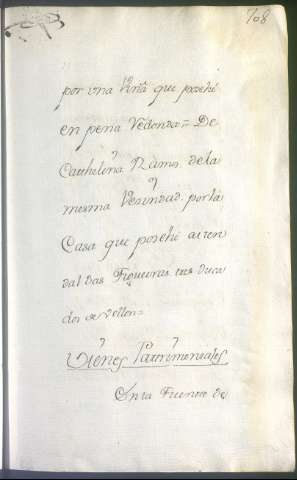 708
por una Viña que poshé
en pena Redonda = De
Cathelina Ramos de la
mesma Vesindad. por la
Casa que poshé aten
dal das Figueiras tres duca
dos de vellon =
Vienes Patrimoniales
En la Fuente de